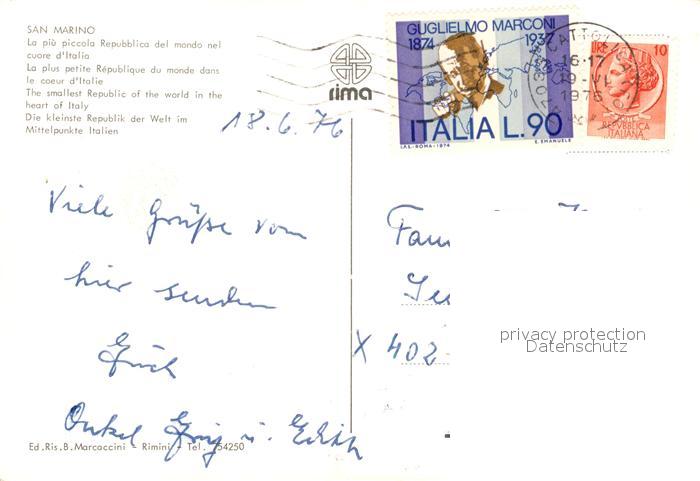 SAN MARINO
La più piccola Repubblica del mondo nel
cuore d'Italia
La plus petite République du monde dans
le coeur d'Italie
The smallest Republic of the world in the
heart of Italy
Die kleinste Republik der Welt im
Mittelpunkte Italien
rima
GUGLIELMO MARCONI
1874 1937
ITALIA L.90
I.P.S.-ROMA-1974 E. EMANUELE
LIRE 10
POSTE
REPVBBLICA
ITALIANA
16-17
19-VI
1976
18.6.76
Viele Grüße von
hier senden
Euch
Onkel u. Edith
Fam
X 402
privacy protection
Datenschutz
Ed.Ris.B.Marcaccini - Rimini - Tel. 54250